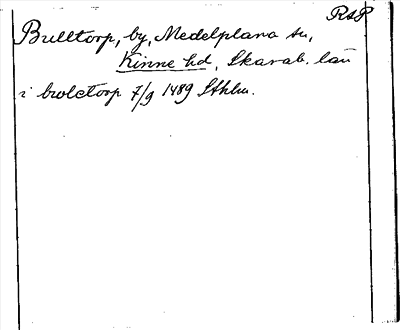 RAP
Bulltorp, by, Medelplana sn,
Kinne hd, Skarab. län
i bwletorp 7/9 1489 Sthlm.